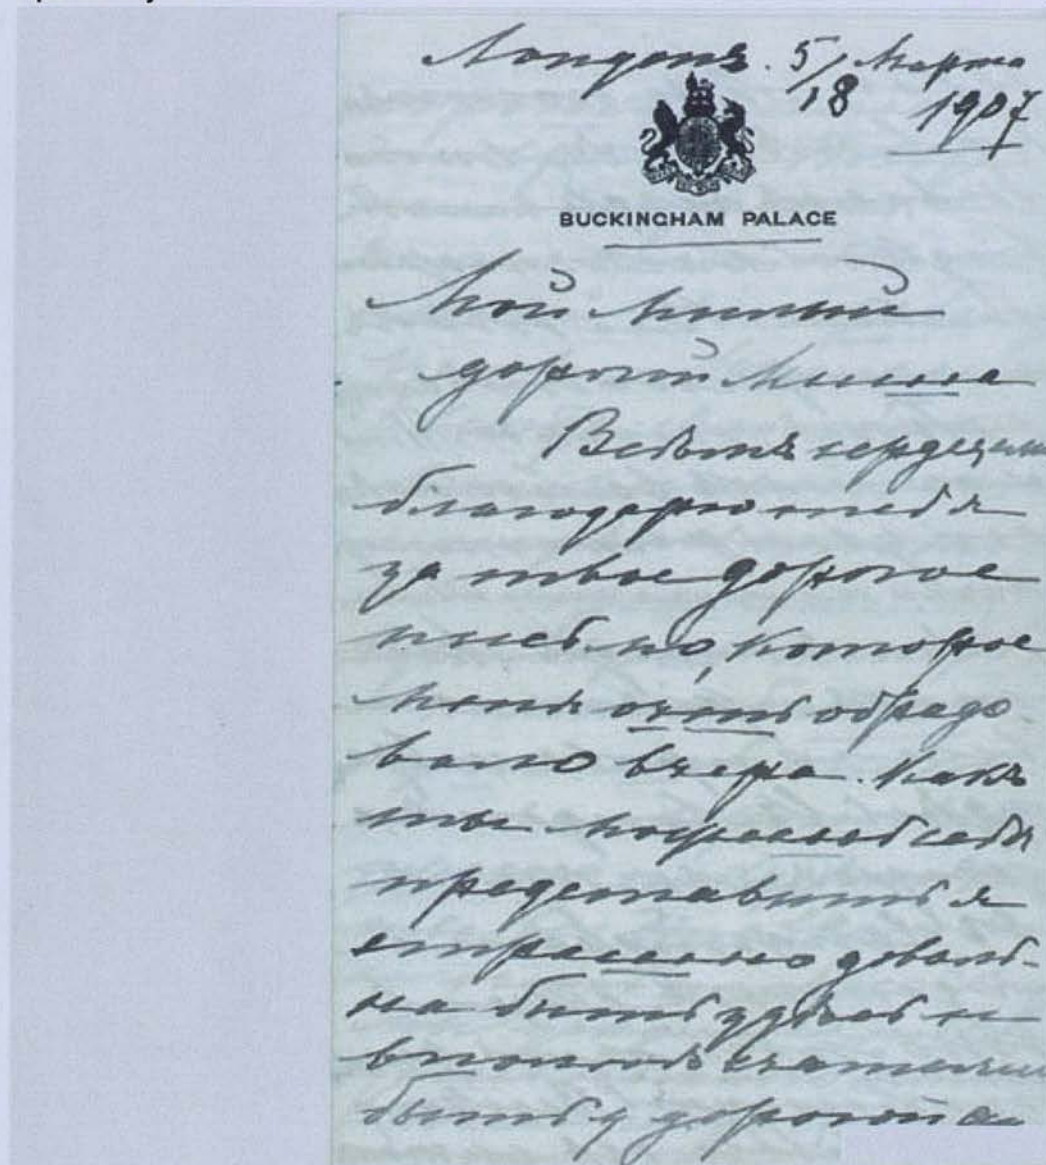 Лондонъ. 5/18 Марта 1907
BUCKINGHAM PALACE
Мой милый
дорогой Миша
Всѣмъ сердцемъ
благодарю тебя
за твое дорогое
письмо, которое
меня очень обрадо
вало вчера. Какъ
ты можешь себѣ
представить я
страшно доволь-
на быть здѣсь и
вполнѣ счастлива
быть у дорогой